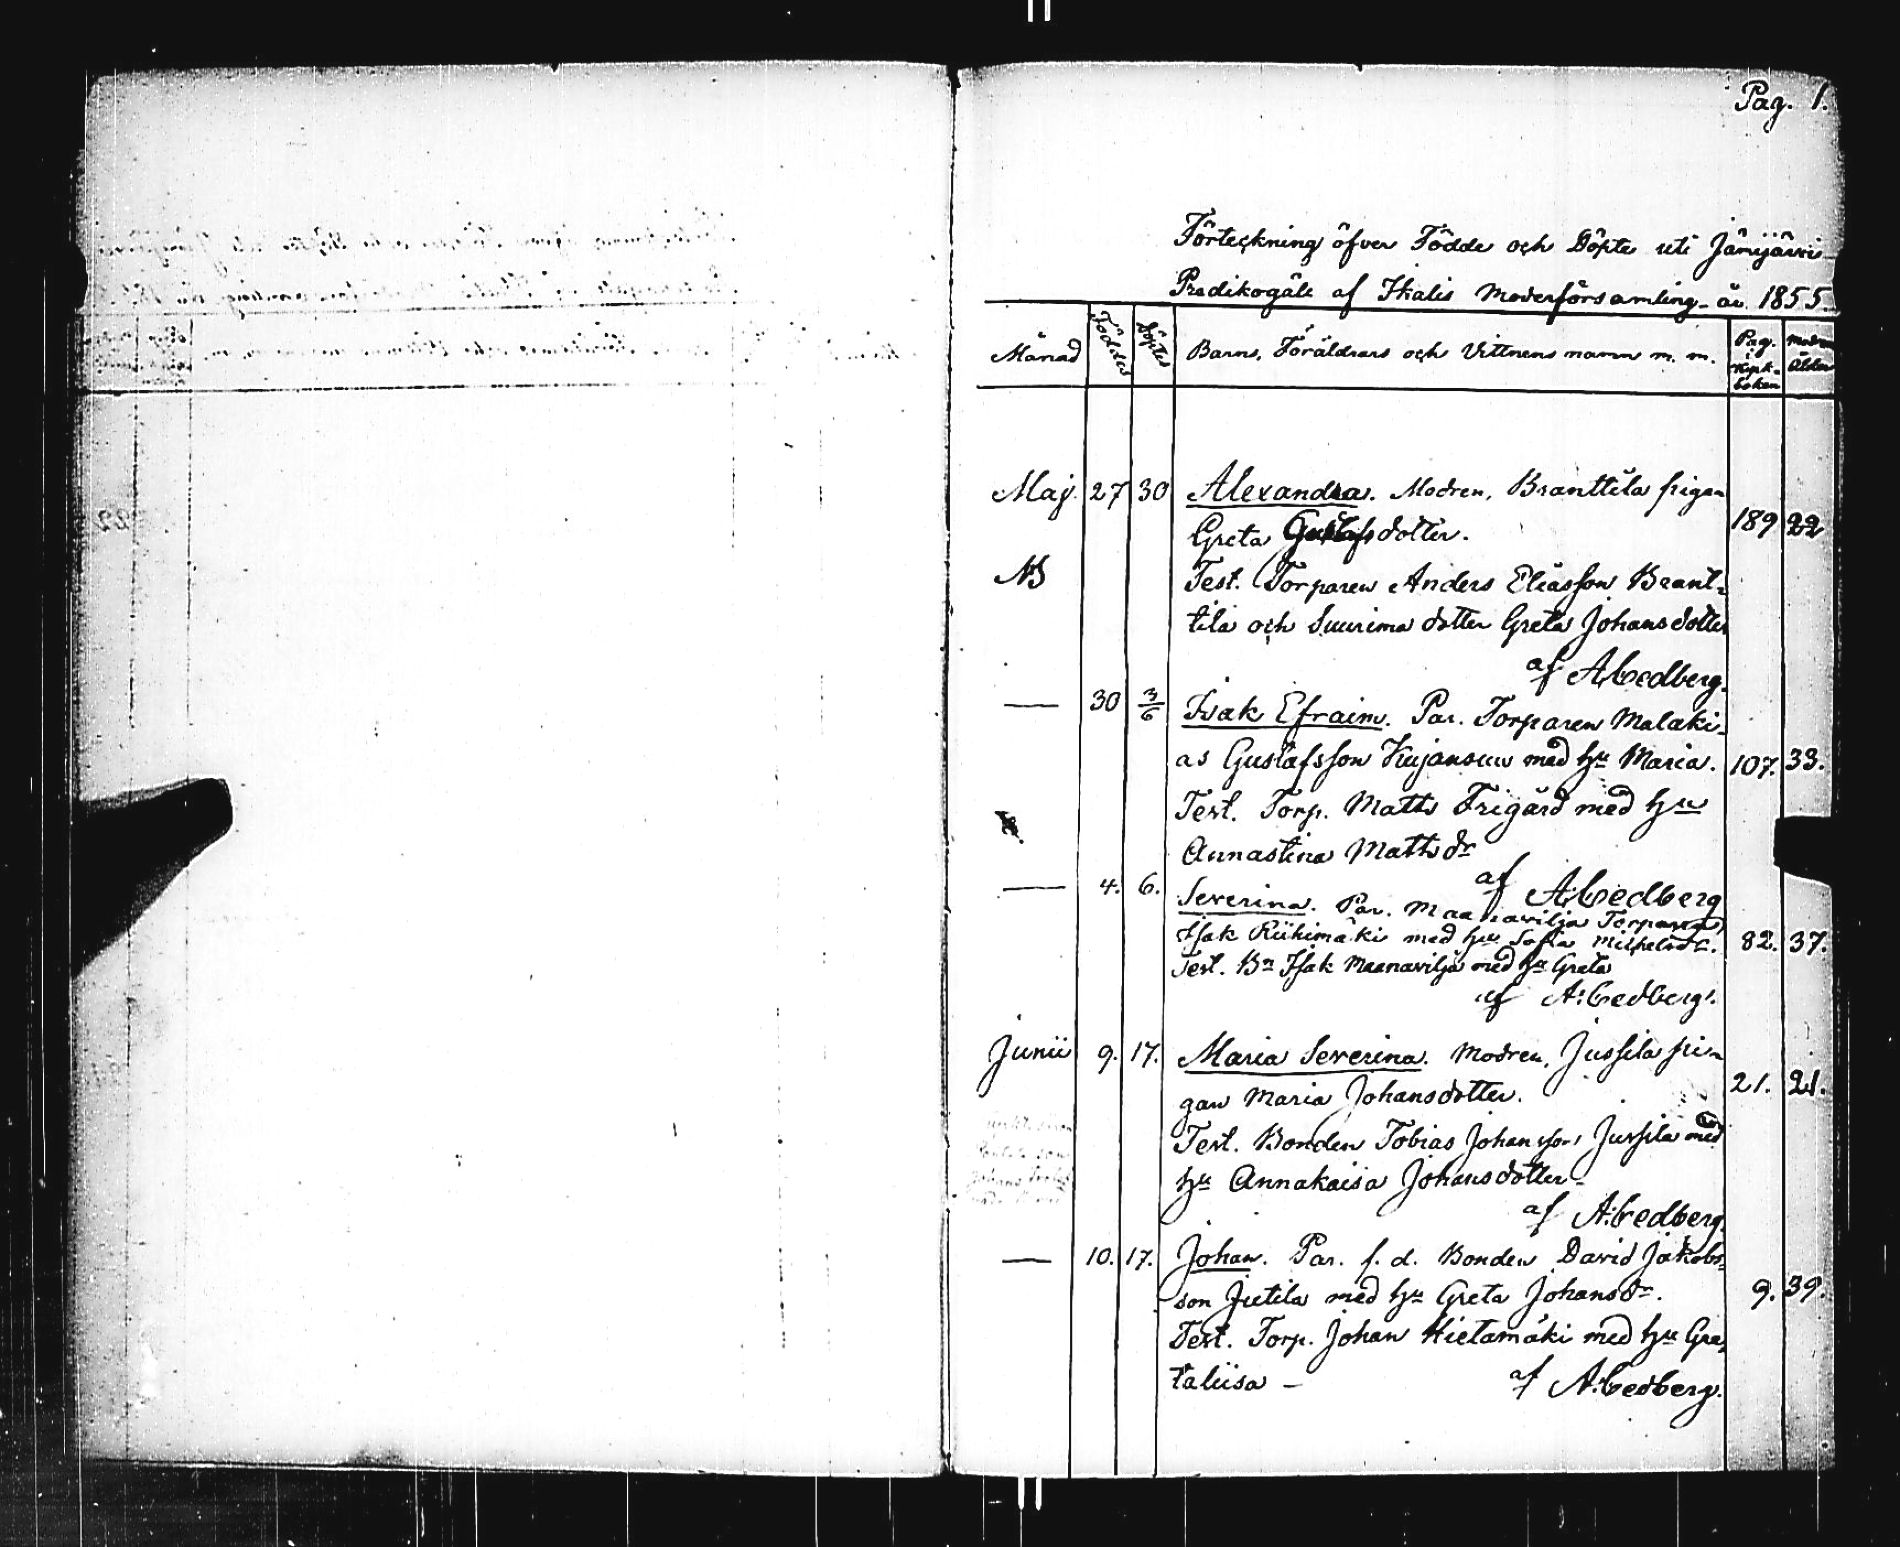 Pag. 1.
Förteckning öfver Födde och Döpte uti Jämijärvi
Predikogäll af Ikalis Moderförsamling år 1855.
Månad Föddes Döptes Barns, Föräldrars och Vittnens namn m. m. Pag. i Kyrk-boken Modrens Ålder
Maj. 27 30 Alexandra. Modren, Branttila pigan
Greta Gustafsdotter. 189 22
NB Test. Torparen Anders Eliasson Brant-
tila och Suurima dotter Greta Johansdotter
af A. Cedberg.
— 30 3/6 Isak Efraim. Par. Torparen Malaki-
as Gustafsson Kujansuu med hu Maria. 107. 33.
Test. Torp. Matts Frigård med hu
Annastina Mattsdr
af A. Cedberg
— 4. 6. Severina. Par. Maanavilja Torparen
Isak Riihimäki med hu Sofia Michelsdr. 82. 37.
Test. Bn Isak Maanavilja med hu Greta
af A: Cedberg.
Junii 9. 17. Maria Severina. Modren, Jussila pi-
gan Maria Johansdotter. 21. 21.
Test. Bonden Tobias Johansson Jussila med
hu Annakaisa Johansdotter
af A: Cedberg.
— 10. 17. Johan. Par. f. d. Bonden David Jakobs-
son Jutila med hu Greta Johansdr. 9. 39.
Test. Torp. Johan Hietamäki med hu Gre-
taliisa —
af A: Cedberg.